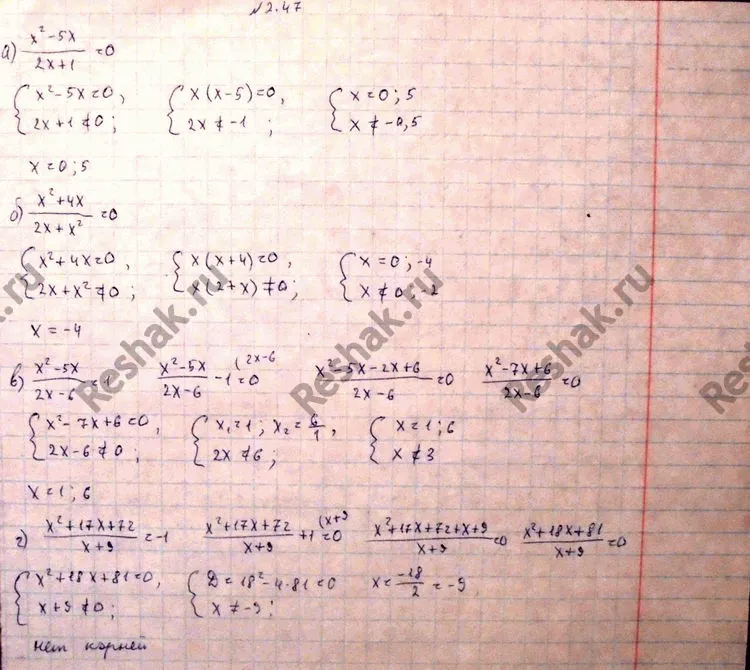 №2.47
а) (x²-5x)/(2x+1) = 0
{ x²-5x=0, 2x+1≠0; { x(x-5)=0, 2x≠-1; { x=0; 5 x≠-0,5
x=0; 5
б) (x²+4x)/(2x+x²) = 0
{ x²+4x=0, 2x+x²≠0; { x(x+4)=0, x(2+x)≠0; { x=0; -4 x≠0; -2
x=-4
в) (x²-5x)/(2x-6) = 1 (x²-5x)/(2x-6) - 1 (2x-6 = 0 (x²-5x-2x+6)/(2x-6) = 0 (x²-7x+6)/(2x-6) = 0
{ x²-7x+6=0, 2x-6≠0; { x₁=1; x₂=6/1, 2x≠6; { x=1; 6 x≠3
x=1; 6
г) (x²+17x+72)/(x+9) = -1 (x²+17x+72)/(x+9) + 1 (x+9 = 0 (x²+17x+72+x+9)/(x+9) = 0 (x²+18x+81)/(x+9) = 0
{ x²+18x+81=0, x+9≠0; { D=18²-4·81=0 x≠-9; x=-18/2=-9
нет корней
Reshak.ru
Reshak.ru
Reshak.ru